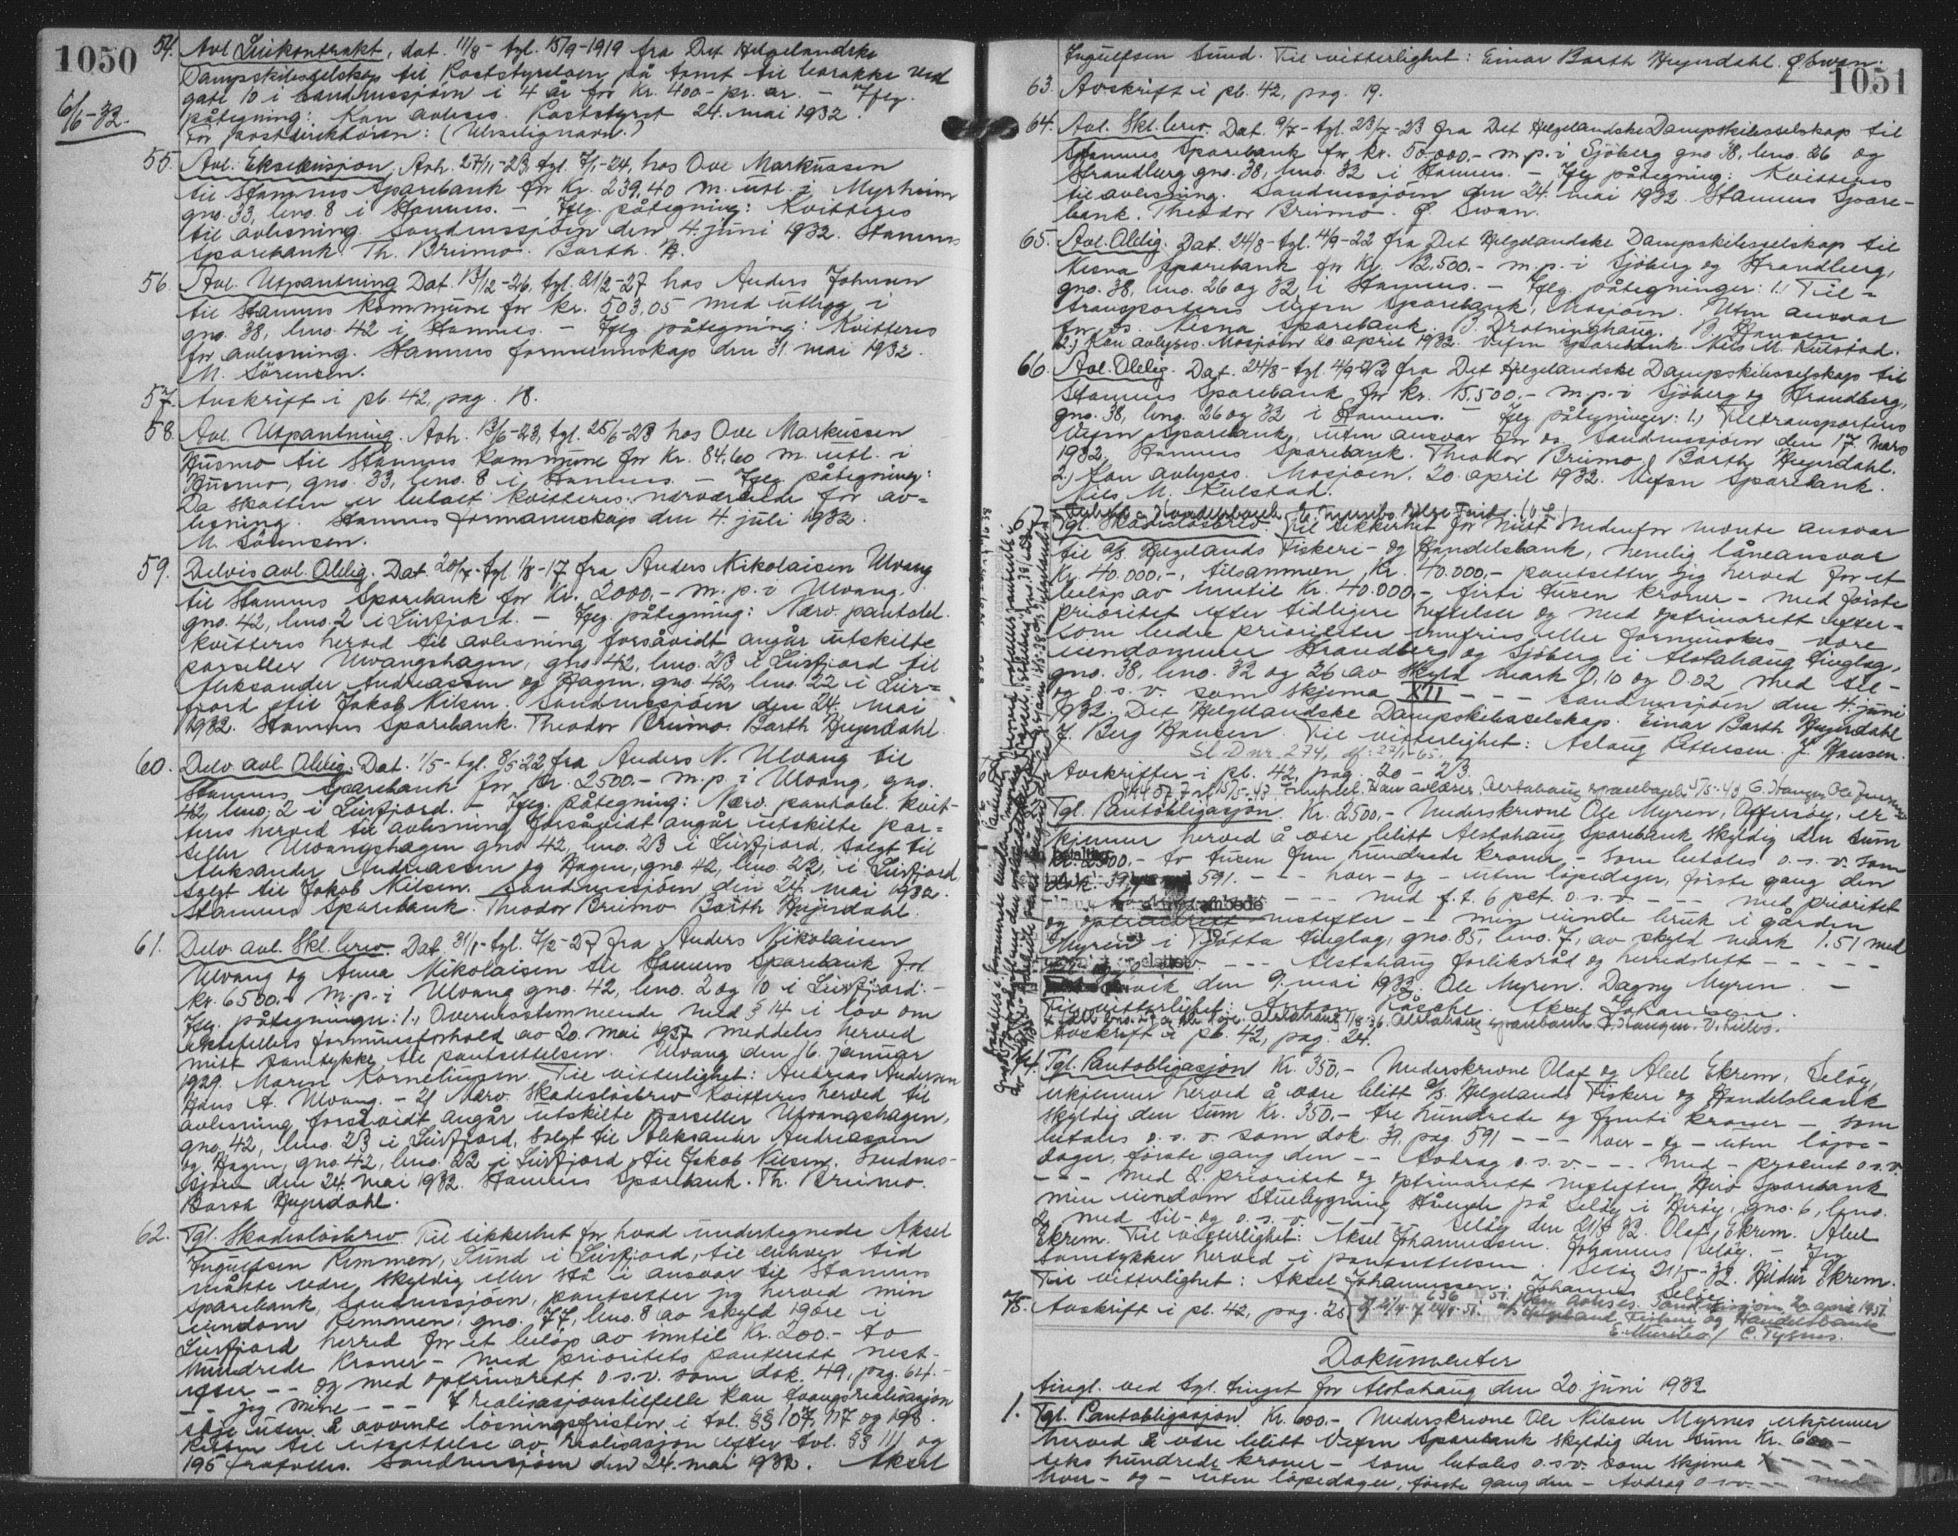 1050
6/6-32.
54. Avl. Leiekontrakt, dat. 11/8 - tgl. 15/9-1919 fra Det Helgelandske
Dampskibsselskap til Poststyrelsen på tomt til barakke ved
gate 10 i Sandnessjøen i 4 år for kr. 400.- pr. år. - Iflg.
påtegning: Kan avlyses. Poststyret 24. mai 1932.
For postdirektøren: (Uleselig navn.)
55. Avl. Eksekusjon, Avh. 27/11-23, tgl. 7/1-24, hos Ove Markussen
til Stamnes Sparebank for kr. 239,40 m. utl. i Myrheim
gno. 33, bno. 8 i Stamnes. - Iflg. påtegning: Kvitteres
til avlesning. Sandnessjøen den 4. juni 1932. Stamnes
Sparebank. Th. Brümo. Barth. H.
56. Avl. Utpantning Dat. 13/12-26, tgl. 21/2-27 hos Anders Johnsen
til Stamnes kommune for kr. 503,05 med utlegg i
gno. 38, bno. 42 i Stamnes. - Iflg. påtegning: Kvitteres
for avlesning. Stamnes formannskap den 31. mai 1932.
M. Sörensen.
57. Avskrift i pb. 42, pag. 18.
58. Avl. Utpantning. Avh. 13/6-23, tgl. 25/6-23 hos Ove Markussen
Husmo til Stamnes kommune for kr. 84,60 m. utl. i
Husmo, gno. 33, bno. 8 i Stamnes. - Iflg. påtegning:
Da skatten er betalt kvitteres nærværende for av=
lesning. Stamnes formannskap den 4. juli 1932.
M. Sörensen.
59. Delvis avl. Oblig. Dat. 20/7 - tgl. 1/8-17 fra Anders Nikolaisen Ulvang
til Stamnes Sparebank for kr. 2000.- m.p. i Ulvang.
gno. 42, bno. 2 i Leirfjord. - Iflg. påtegning: Nærv. pantobl.
kvitteres herved til avlesning forsåvidt angår utskilte
parseller Ulvangshagen, gno. 42, bno. 23 i Leirfjord til
Aleksander Andreassen og Hagen, gno. 42, bno. 22 i Leir=
fjord til Jakob Nilsen. Sandnessjøen den 24. mai
1932. Stamnes Sparebank. Theodor Brümo. Barth Heyerdahl.
60. Delv. avl. Oblig. Dat. 1/5 - tgl. 8/5 22 fra Anders N. Ulvang til
Stamnes Sparebank for kr. 2500.- m.p. i Ulvang, gno.
42, bno. 2 i Leirfjord. - Iflg. påtegning: Nærv. pantobl. kvit-
teres herved til avlesning forsåvidt angår utskilte par=
seller Ulvangshagen gno. 42, bno. 23 i Leirfjord, solgt til
Aleksander Andreassen og Hagen, gno. 42, bno. 22, i Leirfjord
solgt til Jakob Nilsen. Sandnessjøen den 24. mai 1932.
Stamnes Sparebank. Theodor Brümo Barth Heyerdahl.
61. Delv. avl. Skl. brev. Dat. 31/1 - tgl. 7/2-27 fra Anders Nikolaisen
Ulvang og Anna Nikolaisen til Stamnes Sparebank for
kr. 6500.- m.p. i Ulvang gno. 42, bno. 2 og 10 i Leirfjord. -
Iflg. påtegninger: 1.) Overensstemmende med § 14 i lov om
ektefellers formuesforhold av 20. mai 1927 meddeles herved
mitt samtykke til pantsettelsen. Ulvang den 16. januar
1929. Maren Korneliussen. Til vitterlighet: Andreas Andersen
Hans A. Ulvang. - 2) Nærv. Skadesløsbrev kvitteres herved til
avlesning forsåvidt angår utskilte parseller Ulvangshagen,
gno. 42, bno. 23 i Leirfjord, solgt til Aleksander Andreassen
og Hagen, gno. 42, bno. 22 i Leirfjord til Jakob Nilsen. Sandnes-
sjøen den 24. mai 1932. Stamnes Sparebank. Th. Brümo.
Barth Heyerdahl.
62. Tgl. Skadesløsbrev. Til sikkerhet for hvad undertegnede Aksel
Ingulfsen Remmen, Sund i Leirfjord, til enhver tid
måtte være skyldig eller stå i ansvar til Stamnes
Sparebank, Sandnessjøen, pantsetter jeg herved min
eiendom Remmen, gno. 77, bno. 8 av skyld 1 øre i
Leirfjord herred for et beløp av inntil kr. 200.- to
hundrede kroner - med prioritets panterett nest-
efter - - og med optrinsrett o.s.v. som dok. 49, pag. 64. -
- - jeg mine - - - I realisasjonstilfelle kan tvangsrealisasjon
skje uten å avvente løsningsfristen i tvl. §§ 107, 117 og 198.
Retten til utsettelse av realisasjon efter tvl. §§ 111 og
195 frafalles. Sandnessjøen den 24. mai 1932. Aksel
1051
Ingulfsen Sund. Til vitterlighet: Einar Barth Heyerdahl. Ø. Swan.
63. Avskrift i pb. 42, pag. 19.
64. Avl. Skl. brev. Dat. 9/7 - tgl. 23/7-23 fra Det Helgelandske Dampskibsselskap til
Stamnes Sparebank for kr. 50.000.- m.p. i Sjøberg gno. 38, bno. 26 og
Strandberg gno. 38, bno. 32 i Stamnes. - Iflg. påtegning: Kvitteres
til avlesning. Sandnessjøen den 24. mai 1932. Stamnes Spare-
bank. Theodor Brümo. Ø. Swan.
65. Avl. Oblig. Dat. 24/8 - tgl. 4/9-22 fra Det Helgelandske Dampskibsselskap til
Nesna Sparebank for kr. 12.500.- m.p. i Sjøberg og Strandberg,
gno. 38, bno. 26 og 32 i Stamnes. - Iflg. påtegninger: 1.) Til-
transporteres Vefsn Sparebank, Mosjøen. Uten ansvar
for os. Nesna Sparebank. J. Drotninghaug. P. Hansen
2.) Kan avlyses. Mosjøen 20 april 1932. Vefsn Sparebank. Nils M. Kulstad.
66. Avl. Oblig. Dat. 24/8 - tgl. 4/9-22 fra Det Helgelandske Dampskibsselskap til
Stamnes Sparebank for kr. 15.500.- m.p. i Sjøberg og Strandberg,
gno. 38, bno. 26 og 32 i Stamnes. - Iflg. påtegninger: 1.) Tiltransporteres
Vefsn Sparebank, uten ansvar for os. Sandnessjøen den 17. mars
1932. Stamnes Sparebank. Theodor Brümo. Barth Heyerdahl.
2.) Kan avlyses. Mosjøen. 20. april 1932. Vefsn Sparebank.
Nils M. Kulstad.
67. Tgl. Skadesløsbrev. Til sikkerhet for mitt nedenfor nevnte ansvar
til A/S Helgelands Fiskeri- og Handelsbank, nemlig låneansvar
kr. 40.000.-, tilsammen kr. 40.000.- pantsetter jeg herved for et
beløp av inntil kr. 40.000.- firti tusen kroner - med første
prioritet efter tidligere heftelser og med optrinsrett efter-
som bedre prioriteter innfries eller forminskes vore
eiendommer Strandberg og Sjøberg i Alstahaug tinglag,
gno. 38, bno. 32 og 26 av skyld mark 0.10 og 0.02 med til-
og o.s.v. som skjema XII - - - Sandnessjøen den 4. juni
1932. Det Helgelandske Dampskibsselskap. Einar Barth Heyerdahl
J. Berg Hansen. Til vitterlighet: Aslaug Pettersen. J. Hansen.
Sl. D nr. 274, 27/1-65.
Avskrifter i pb. 42, pag. 20 - 23.
Tgl. Pantobligasjon. Kr. 2500.- Underskrevne Ole Myren, Offersøy, er-
kjenner herved å være blitt Alstahaug Sparebank skyldig den sum
kr. 2500.- to tusen fem hundrede kroner - som betales o.s.v. som
dok. 39, 591. - - - hver - og - uten løpedager, første gang den
- - - med f.t. 6 pct. o.s.v. - - - med prioritet
og optrinsrett nestefter - - min eiende bruk i gården
Myren i Tjøtta tinglag, gno. 85, bno. 7, av skyld mark 1.51 med
- - - Alstahaug forliksråd og herredsrett - - - -
den 9. mai 1932. Ole Myren. Dagny Myren. -
Til vitterlighet: Anton Aksel Johansen.
Avskrift i pb. 42, pag. 24.
74. Tgl. Pantobligasjon Kr. 350.- Underskrevne Olaf og Abel Ekrem, Seløy,
erkjenner herved å være blitt A/S Helgelands Fiskeri og Handelsbank
skyldig den sum kr. 350.- tre hundrede og femti kroner - som
betales o.s.v. som dok. 39, pag. 591 - - - hver - og - uten løpe-
dager, første gang den - - Avdrag o.s.v. - - - med - prosent o.s.v.
- - - med 2. prioritet og optrinsrett nestefter Herø Sparebank
min eiendom Stuebygning stående på Seløy i Herøy, gno. 6, bno.
2, med til- og o.s.v. - - - Seløy den 21/5 32. Olaf Ekrem. Abel
Ekrem. Til vitterlighet: Aksel Johannessen. Johannes Seløy. - Jeg
samtykker herved i pantsettelsen. Seløy 21/5-32. Hildur Ekrem.
Til vitterlighet: Aksel Johannessen. Johannes Seløy.
75. Avskrift i pb. 42, pag. 25
Kan avlyses. Sandnessjøen 20 april 1951
A/S Helgeland Fiskeri og Handelsbank
Dokumenter
tingl. ved tgl. tinget for Alstahaug den 20. juni 1932
1. Tgl. Pantobligasjon. Kr. 600.- Underskrevne Ole Nilsen Myrnes erkjenner
herved å være blitt Vefsn Sparebank skyldig den sum kr. 600 -
seks hundrede kroner - som betales o.s.v. som skjema X - - - - -
hver - og - uten løpedager, første gang den - Avdrag o.s.v. - - med